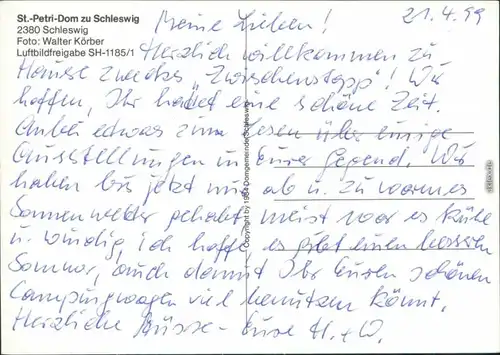 St.-Petri-Dom zu Schleswig
2380 Schleswig
Foto: Walter Körber
Luftbildfreigabe SH-1185/1
21.4.99
Meine Lieben!
Herzlich willkommen zu
Hause zwecks "Zwischenstopp"! Wir
hoffen, Ihr hattet eine schöne Zeit.
Anbei etwas zum Lesen über einige
Ausstellungen in Eurer Gegend. Wir
haben bis jetzt nur ab u. zu warmes
Sonnenwetter gehabt, meist war es kühl
u. windig, ich hoffe, es gibt einen besseren
Sommer, auch damit Ihr Euren schönen
Campingwagen viel benutzen könnt.
Herzliche Grüsse - Eure H. + W.
Copyright by 1984 Domgemeinde Schleswig